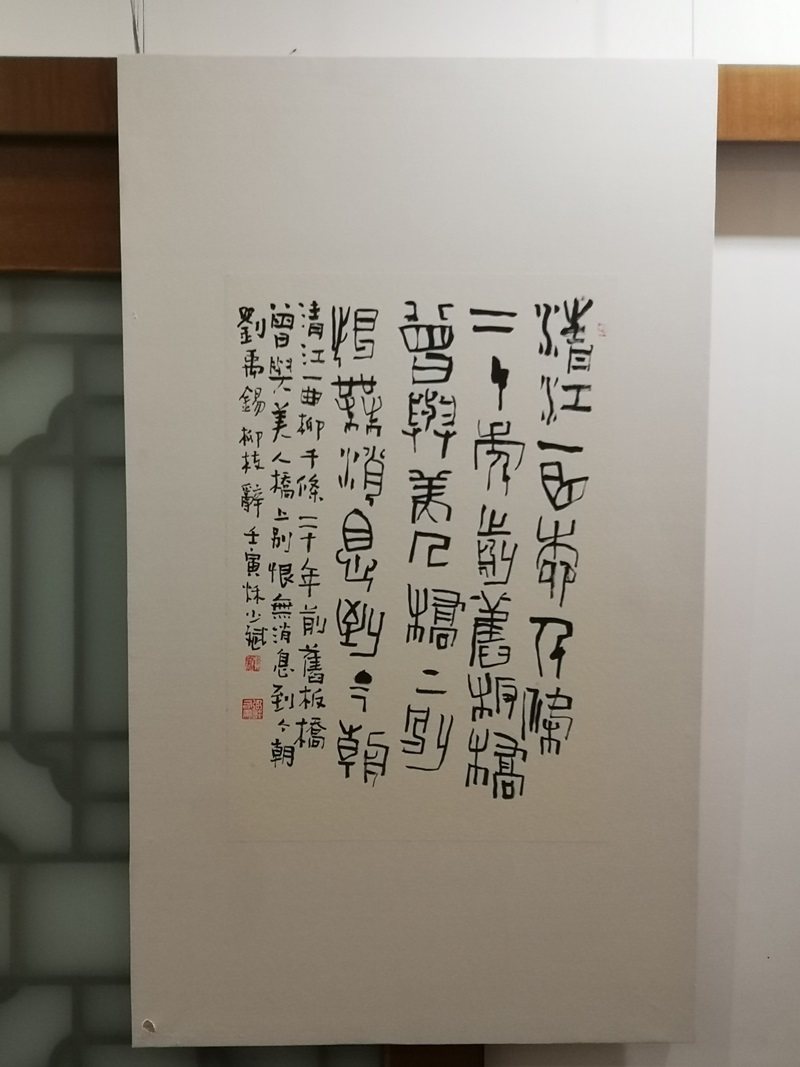 清江一曲柳千條
二十年前舊板橋
曾與美人橋上別
恨無消息到今朝
清江一曲柳千條二十年前舊板橋
曾與美人橋上別恨無消息到今朝
劉禹錫柳枝辭壬寅秌少斌